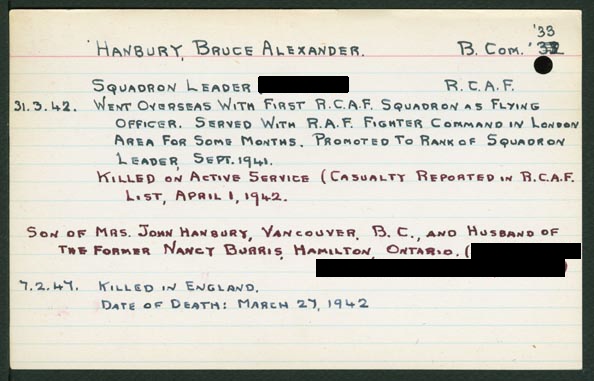 '33
HANBURY, BRUCE ALEXANDER. B. COM.
SQUADRON LEADER R.C.A.F.
31.3.42. WENT OVERSEAS WITH FIRST R.C.A.F. SQUADRON AS FLYING
OFFICER. SERVED WITH R.A.F. FIGHTER COMMAND IN LONDON
AREA FOR SOME MONTHS. PROMOTED TO RANK OF SQUADRON
LEADER, SEPT. 1941.
KILLED ON ACTIVE SERVICE (CASUALTY REPORTED IN R.C.A.F.
LIST, APRIL 1, 1942.
SON OF MRS. JOHN HANBURY, VANCOUVER, B.C., AND HUSBAND OF
THE FORMER NANCY BURRIS, HAMILTON, ONTARIO. (
)
7.2.47. KILLED IN ENGLAND.
DATE OF DEATH: MARCH 27, 1942